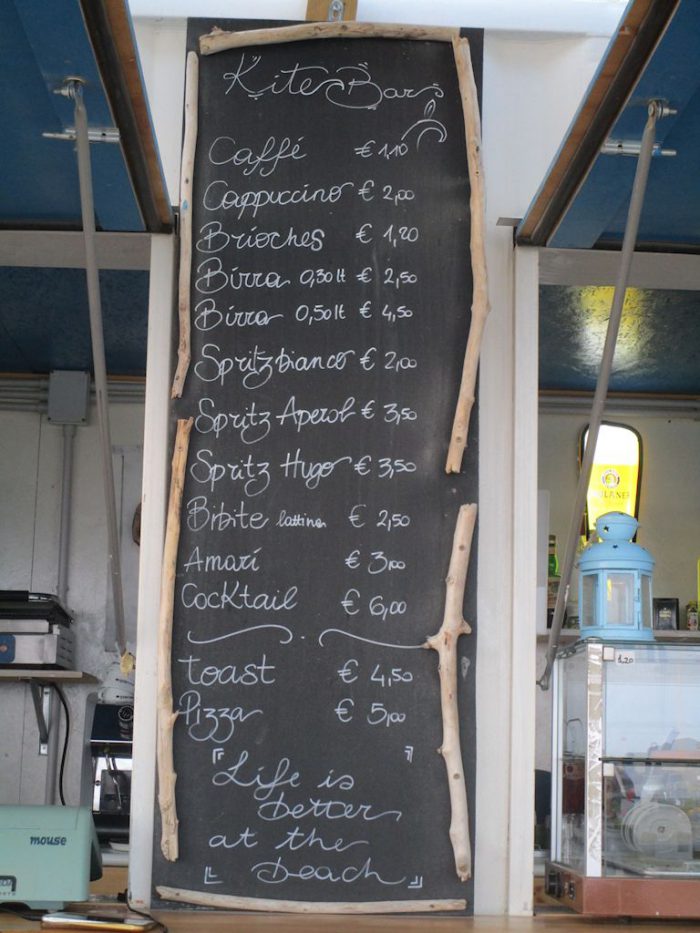 Kite Bar
Caffé € 1,10
Cappuccino € 2,00
Brioches € 1,20
Birra 0,30lt € 2,50
Birra 0,50lt € 4,50
Spritz bianco € 2,00
Spritz Aperol € 3,50
Spritz Hugo € 3,50
Bibite lattina € 2,50
Amari € 3,00
Cocktail € 6,00
toast € 4,50
Pizza € 5,00
Life is
better
at the
beach
1,20
mouse